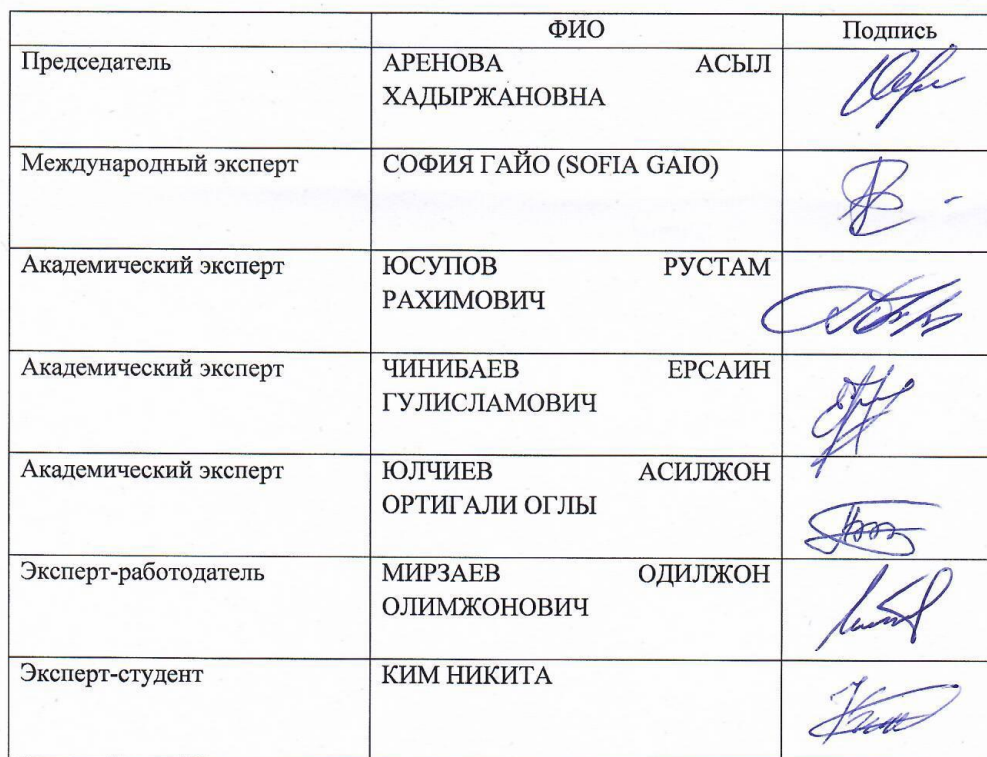 ФИО Подпись
Председатель АРЕНОВА АСЫЛ
ХАДЫРЖАНОВНА
Международный эксперт СОФИЯ ГАЙО (SOFIA GAIO)
Академический эксперт ЮСУПОВ РУСТАМ
РАХИМОВИЧ
Академический эксперт ЧИНИБАЕВ ЕРСАИН
ГУЛИСЛАМОВИЧ
Академический эксперт ЮЛЧИЕВ АСИЛЖОН
ОРТИГАЛИ ОГЛЫ
Эксперт-работодатель МИРЗАЕВ ОДИЛЖОН
ОЛИМЖОНОВИЧ
Эксперт-студент КИМ НИКИТА